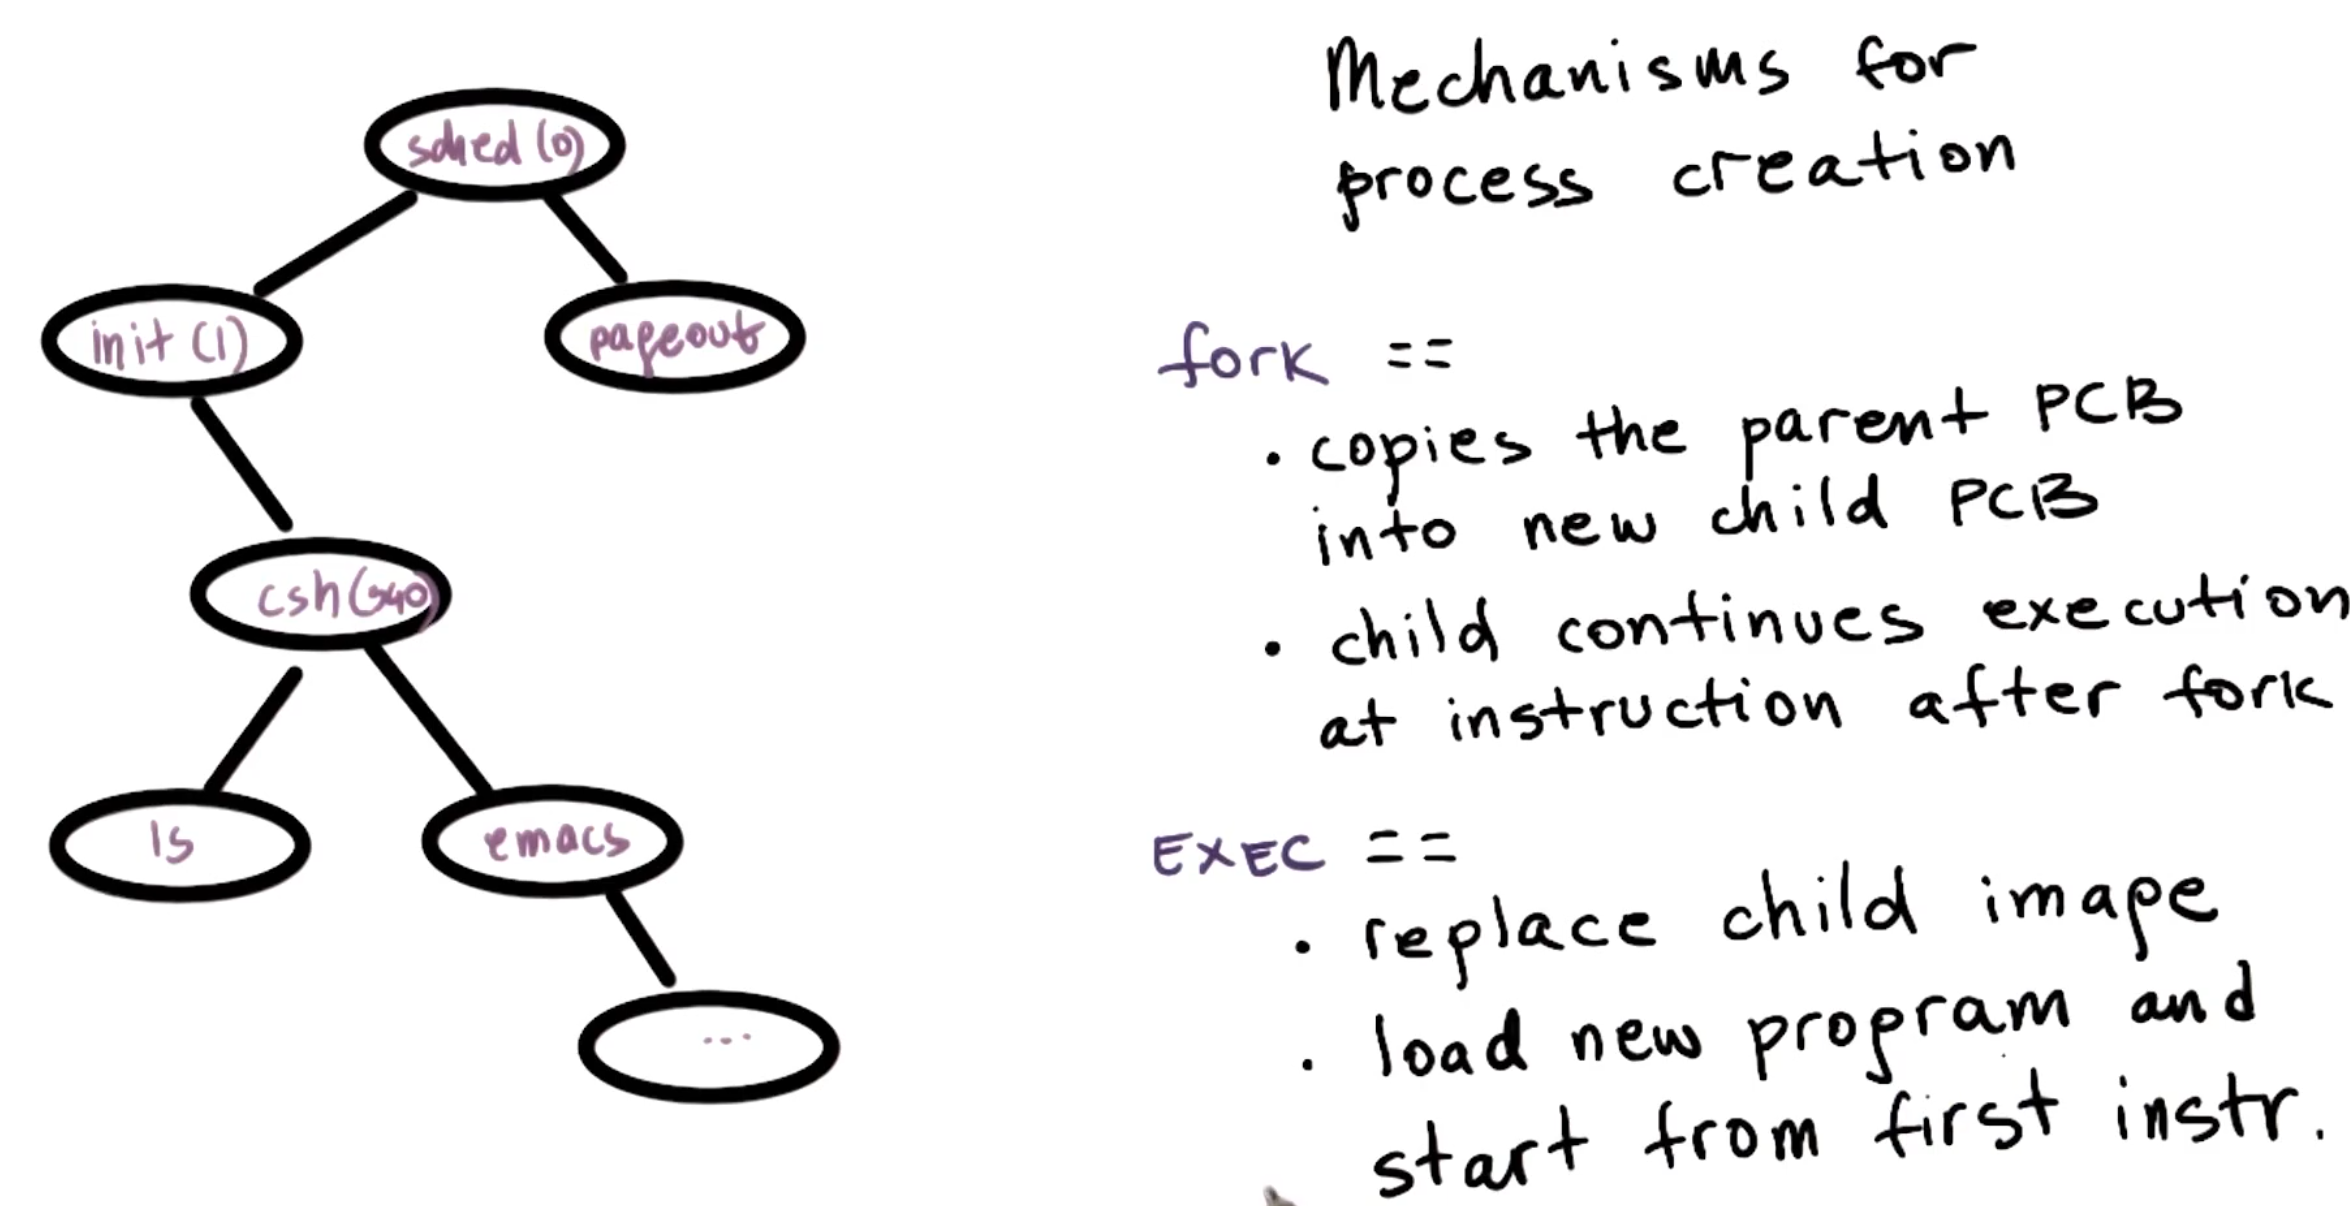 sched (0)
init (1)
pageout
csh (340)
ls
emacs
...
Mechanisms for
process creation
fork ==
• copies the parent PCB
into new child PCB
• child continues execution
at instruction after fork
EXEC ==
• replace child image
• load new program and
start from first instr.